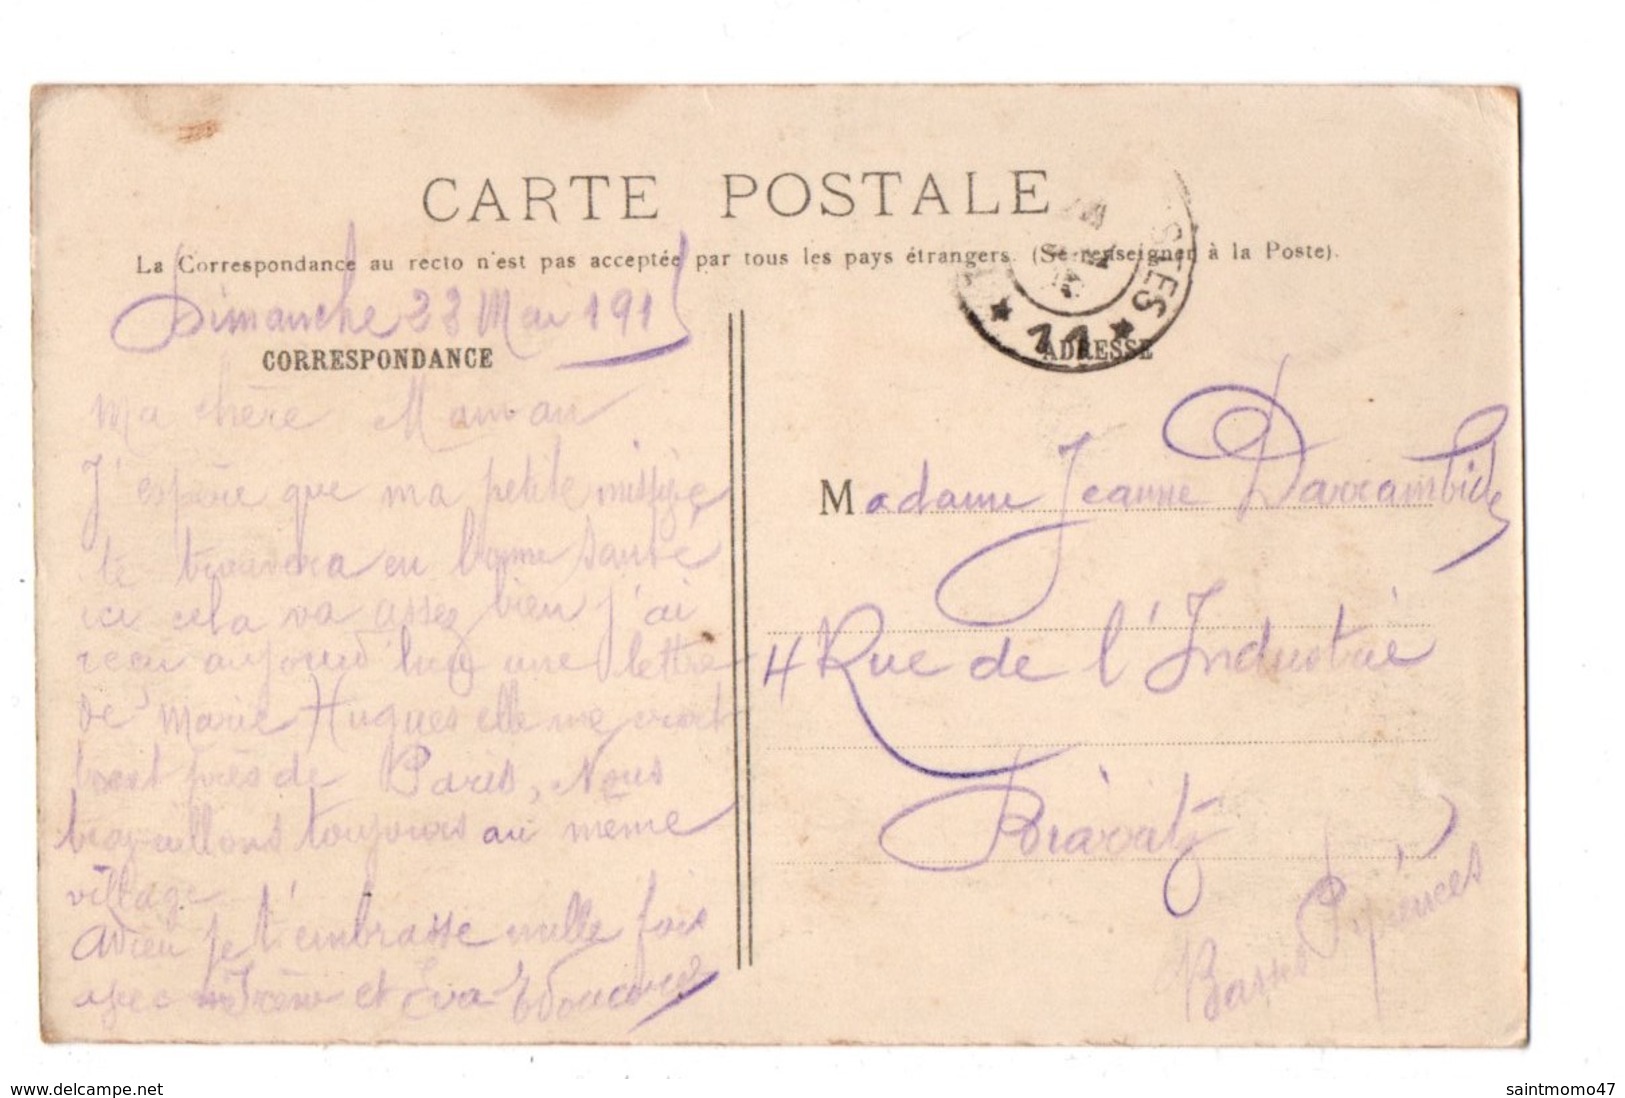 CARTE POSTALE
La Correspondance au recto n'est pas acceptée par tous les pays étrangers. (Se renseigner à la Poste).
Dimanche 23 Mai 1915
CORRESPONDANCE
Ma chère Maman
J'espère que ma petite
te trouvera en bonne santé
ici cela va assez bien j'ai
recu aujourd'huy une lettre
de Marie Hugues elle me croit
tout près de Paris, Nous
travaillons toujours au même
village
Adieu je t'embrasse mille fois
avec Irène et Eva Edouard
* 11 *
ADRESSE
Madame Jeanne Darrambide
4 Rue de l'Industrie
Biarritz
Basses Pyrénées
www.delcampe.net
saintmomo47